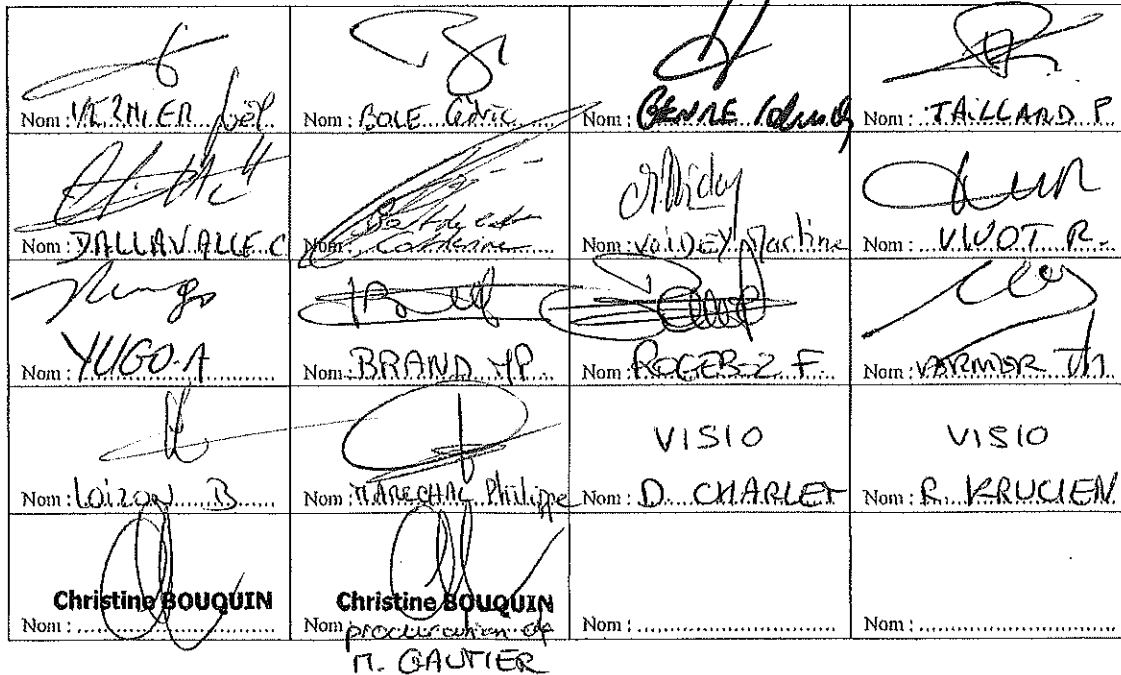 Nom : VERNIER Joël
Nom : BOLE Cédric
Nom : GENRE
Nom : TAILLARD P.
Nom : DALLAVALLE C
Nom : Catherine
Nom : VOIDEY Martine
Nom : VIVOT R.
Nom : YUGO.A
Nom : BRAND MP.
Nom : ROGEBOZ F.
Nom : VERMOR Th
Nom : LOIZON B
Nom : MARECHAL Philippe
VISIO
Nom : D. CHARLET
VISIO
Nom : R. KRUCIEN
Christine BOUQUIN
Nom :
Christine BOUQUIN
Nom :
procuration de
M. GAUTIER
Nom :
Nom :